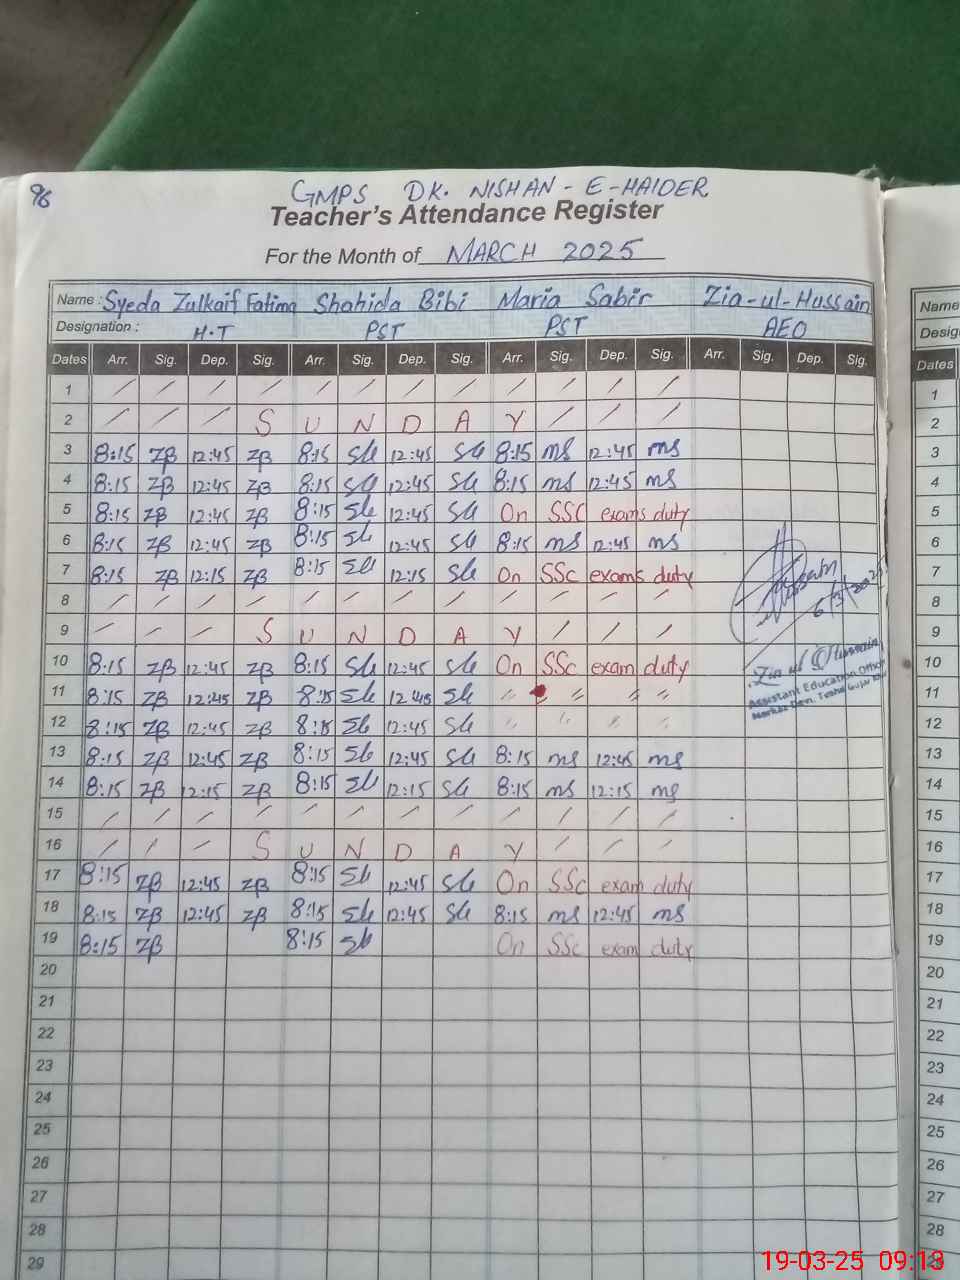 96
GMPS DK. NISHAN-E-HAIDER
Teacher's Attendance Register
For the Month of MARCH 2025
Name: Syeda Zulkaif Fatima Shahida Bibi Maria Sabir Zia-ul-Hussain
Designation: H.T PST PST AEO
Dates Arr. Sig. Dep. Sig. Arr. Sig. Dep. Sig. Arr. Sig. Dep. Sig. Arr. Sig. Dep. Sig.
1 / / / / / / / / / / / /
2 / / / S U N D A Y / / /
3 8:15 ZB 12:45 ZB 8:15 12:45 8:15 ms 12:45 ms
4 8:15 ZB 12:45 ZB 8:15 12:45 8:15 ms 12:45 ms
5 8:15 ZB 12:45 ZB 8:15 12:45 On SSC exams duty
6 8:15 ZB 12:45 ZB 8:15 12:45 8:15 ms 12:45 ms
7 8:15 ZB 12:15 ZB 8:15 12:15 On SSc exams duty
Hussain
6/3/2025
8 / / / / / / / / / / / /
9 / / / S U N D A Y / / /
10 8:15 ZB 12:45 ZB 8:15 12:45 On SSc exam duty
Zia ul Hussain
Assistant Education Officer
11 8:15 ZB 12:45 ZB 8:15 12:45 " " " "
12 8:15 ZB 12:45 ZB 8:15 12:45 " " " "
13 8:15 ZB 12:45 ZB 8:15 12:45 8:15 ms 12:45 ms
14 8:15 ZB 12:15 ZB 8:15 12:15 8:15 ms 12:15 ms
15 / / / / / / / / / / / /
16 / / / S U N D A Y / / /
17 8:15 ZB 12:45 ZB 8:15 12:45 On SSc exam duty
18 8:15 ZB 12:45 ZB 8:15 12:45 8:15 ms 12:45 ms
19 8:15 ZB 8:15 On SSc exam duty
20
21
22
23
24
25
26
27
28
29
Name
Desig
Dates
1
2
3
4
5
6
7
8
9
10
11
12
13
14
15
16
17
18
19
20
21
22
23
24
25
26
27
28
19-03-25 09:13